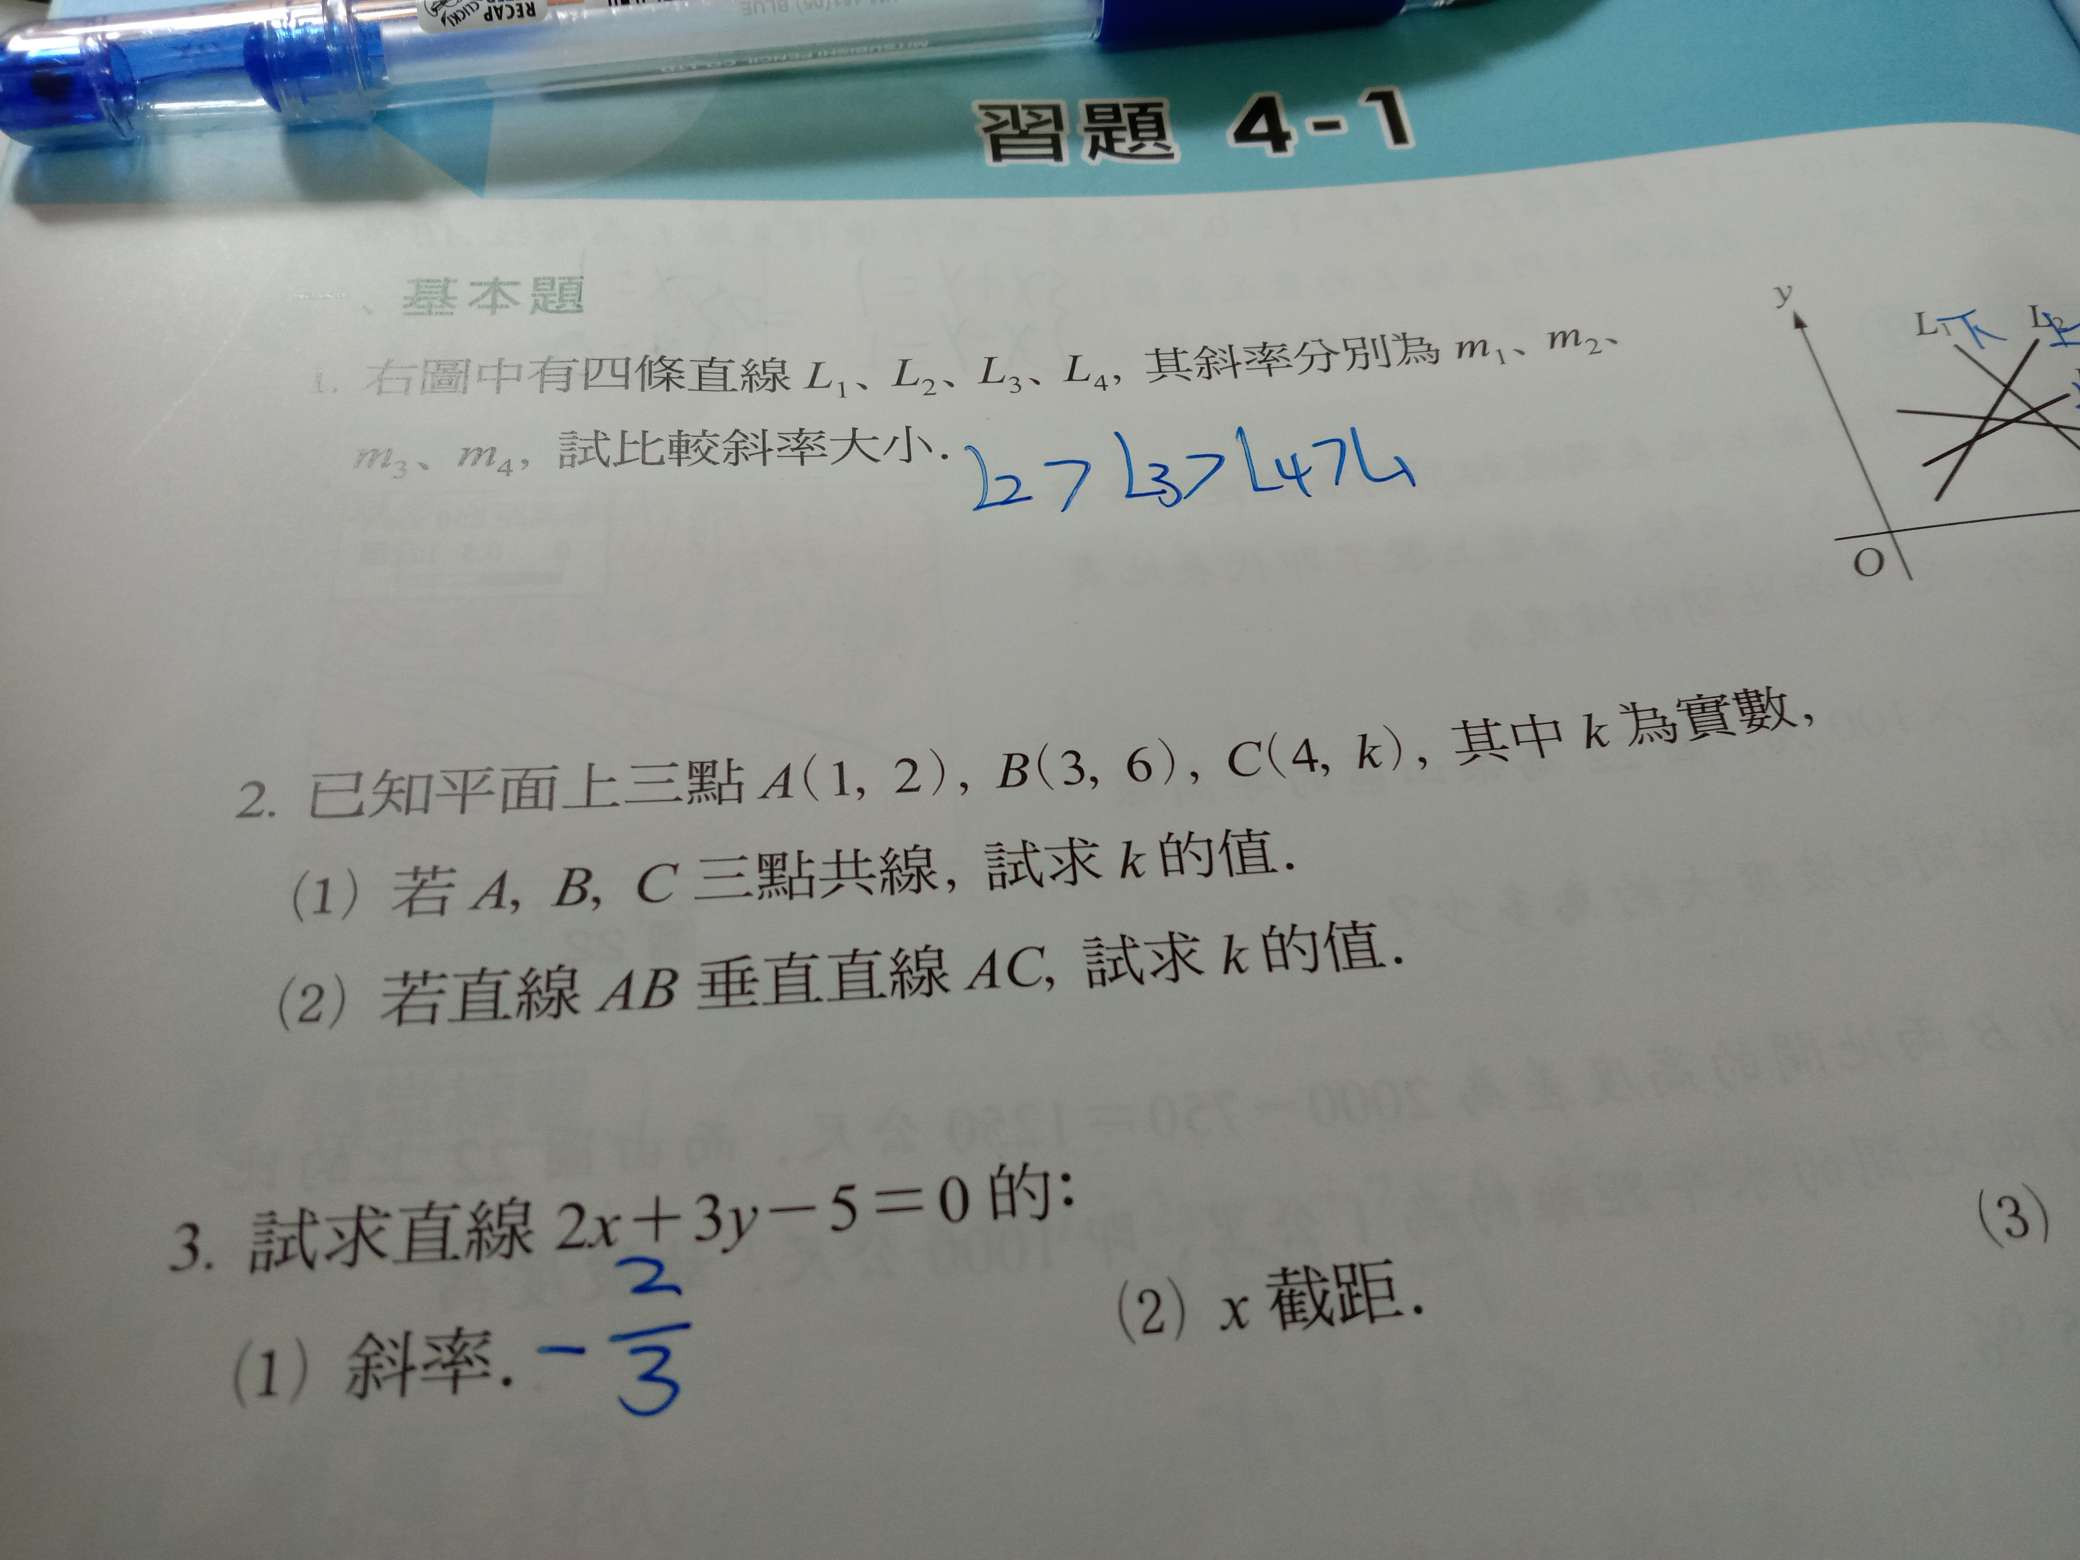 RECAP
MITSUBISHI PENCIL CO., LTD.
習題 4-1
一、基本題
y
L₁下 L₂上
1. 右圖中有四條直線 L₁、L₂、L₃、L₄, 其斜率分別為 m₁、m₂、
m₃、m₄, 試比較斜率大小. L2 > L3 > L4 > L1
O
2. 已知平面上三點 A(1, 2), B(3, 6), C(4, k), 其中 k 為實數,
(1) 若 A, B, C 三點共線, 試求 k 的值.
(2) 若直線 AB 垂直直線 AC, 試求 k 的值.
3. 試求直線 2x+3y−5=0 的:
(1) 斜率. −2/3 (2) x 截距. (3)